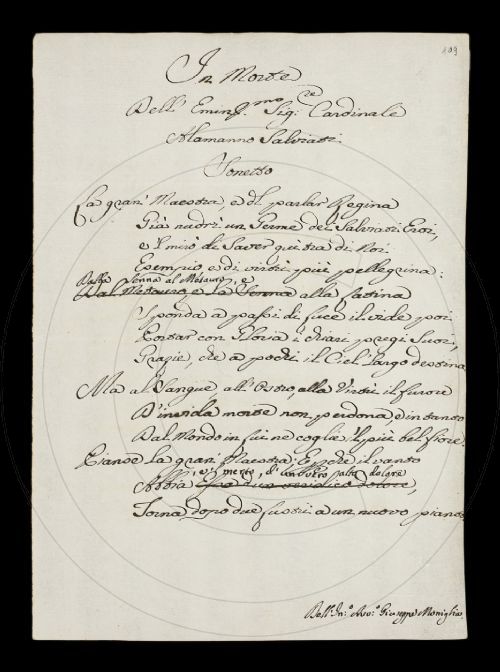 109
In Morte
Dell' Eming.mo Sig.re Cardinale
Alamanno Salviati.
Sonetto
La gran Maestra, e del parlar Regina
Già nadrì un Germe dei Salviati Eroi,
e l mirò di Saver quì tra di Noi
Esempio e di virtù più pellegrina:
Dalla Senna al Metauro, e
Dal Metauro, e la Senna alla latina
Sponda a passi di luce il vide poi
Portar con Gloria i chiari pregi Suoi,
Grazie, che a pochi il Ciel largo destina
Ma al Sangue all' Ostro, alla Virtù il furore
D'invida morte non perdona e intanto
Dal Mondo in fin ne coglie il più bel fiore.
Piange la gran Maestra: e
e merto, d'alto dolore
Abbia
Torna dopo due lustri a un nuovo pianto
Dell' Avv.o Giuseppe Moniglia